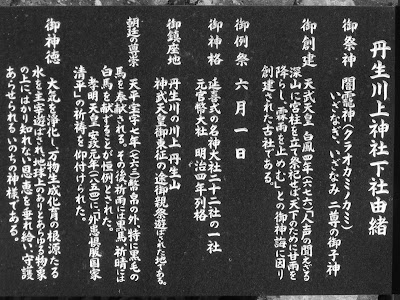 丹生川上神社下社由緒
御祭神 闇龗神(クラオカミノカミ)
いざなぎ、いざなみ 二尊の御子神
御創建 天武天皇 白鳳四年(六七六)「人声の聞えざる
深山に宮柱を立て祭祀せば、天下のために甘雨を
降らし、霖雨を止めむ」との御神誨に因り
創建された古社である。
御例祭 六月一日
御神格 延喜式の名神大社 二十二社の一社
元官幣大社 明治四年列格
御鎮座地 丹生川の川上 丹生山
神武天皇御東征の途御親祭遊ばされた地である。
朝廷の尊崇 天平宝字七年(七六三)幣帛の外、特に黒毛の
馬を奉献される。その後、祈雨には黒馬、祈晴には
白馬を献ずることが恒例とされた。
孝明天皇、安政元年(一八五四)「外患惧服国家
清平」の祈祷を仰付けられた。
御神徳 大気を浄化し、万物生成化育の根源たる
水を主宰遊ばされ、地球上のありとあらゆる物象
の上にはかり知れない恩恵を垂れ給い、守護
あらせられるいのちの神様である。